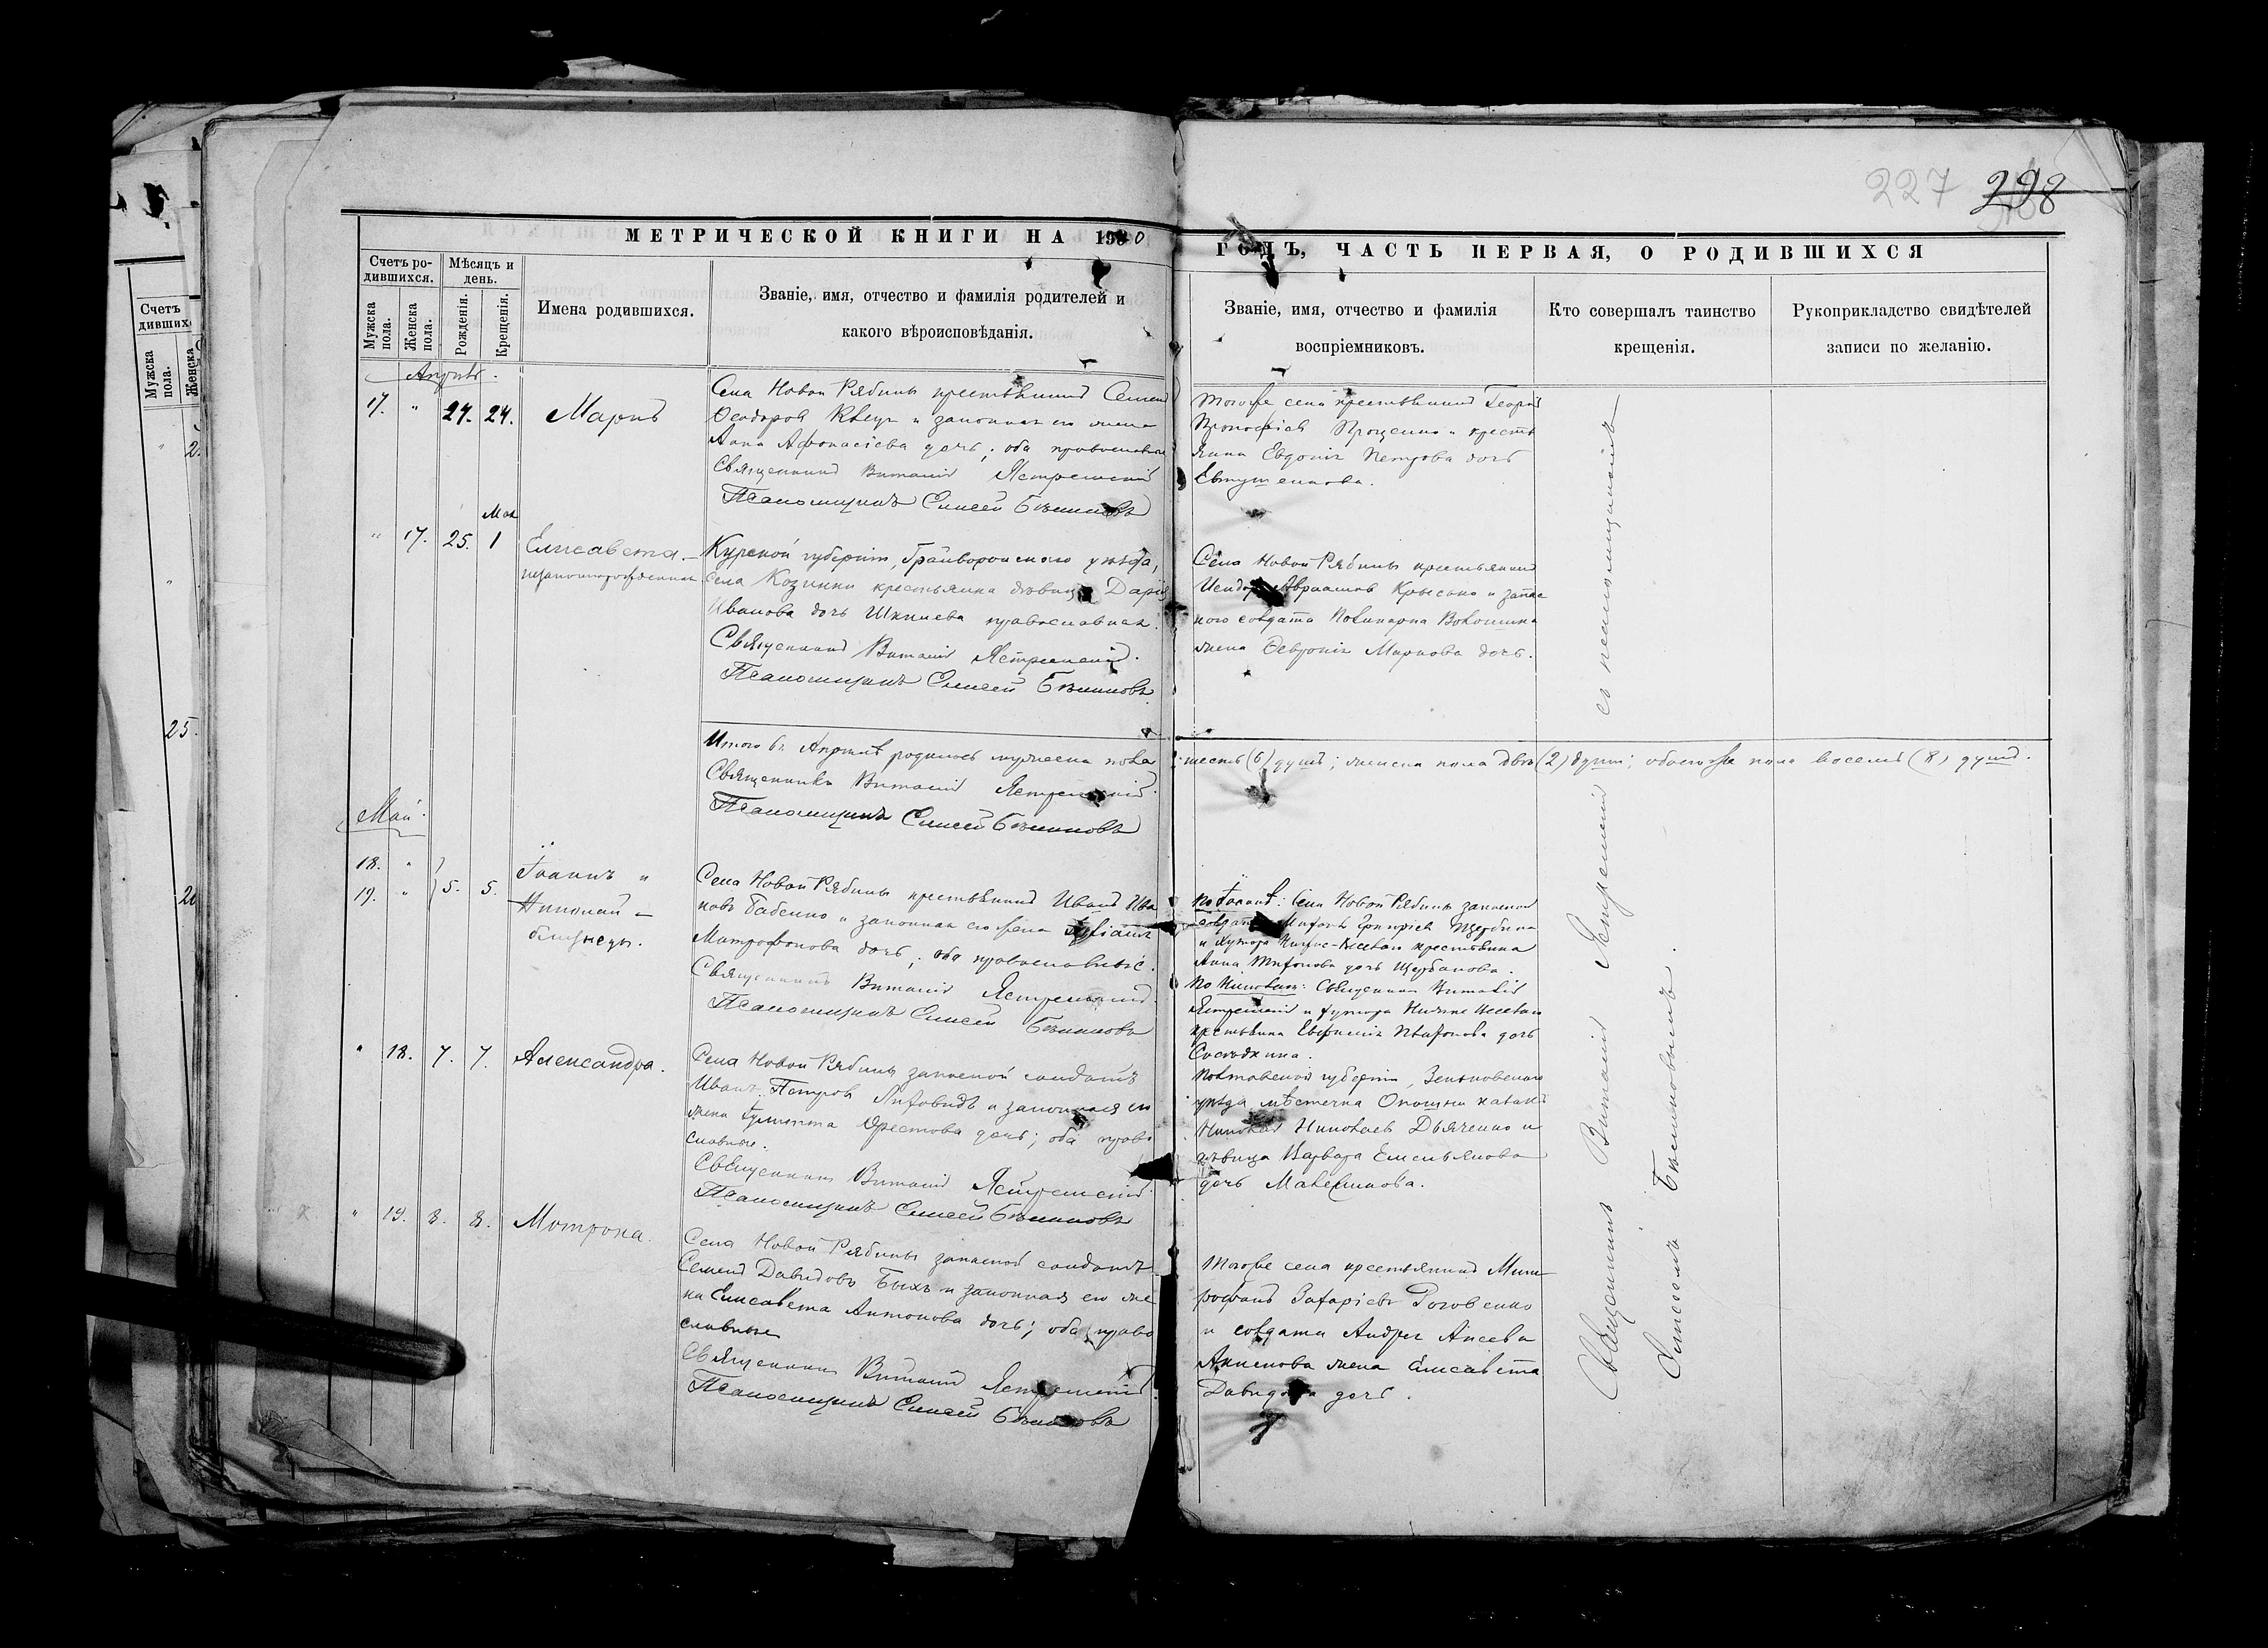 227 228
МЕТРИЧЕСКОЙ КНИГИ НА 1900
ГОДЪ, ЧАСТЬ ПЕРВАЯ, О РОДИВШИХСЯ
Счетъ ро-
дившихся.
Мѣсяцъ и
день.
Мужска
пола.
Женска
пола.
Рожденія.
Крещенія.
Имена родившихся.
Званіе, имя, отчество и фамилія родителей и
какого вѣроисповѣданія.
Званіе, имя, отчество и фамилія
воспріемниковъ.
Кто совершалъ таинство
крещенія.
Рукоприкладство свидѣтелей
записи по желанію.
Счетъ
дивших
Мужска
пола.
Женска
25.
Апрѣль.
17. " 24. 24. Маркъ
Села Новой Рябины крестьянинъ Семенъ
Ѳеодоровъ Квецъ и законная его жена
Анна Афонасіева дочь; оба православные
Священникъ Виталій Ястремскій
Псаломщикъ Елисей
Тогоже села крестьянинъ Георгій
Прокофіевъ Проценко и кресть
янка Евдокія Петрова дочь
Евтушенкова.
Мая
" 17. 25. 1 Елисавета –
незаконнорожденная
Курской губерніи, Грайворонского уѣзда,
села Козинки крестьянка дѣвица Дарія
Иванова дочь православная.
Священникъ Виталій Ястремскій.
Псаломщикъ Елисей
Села Новой Рябины крестьянинъ
Исидоръ Авраамовъ Крысько и запас
ного солдата Поликарпа Волошина
жена Февронія Маркова дочь.
Итого въ Апрѣлѣ родилось мужеска пола
шесть (6) душъ; женска пола двѣ (2) души; обоего пола восемь (8) душъ.
Священникъ Виталій Ястремскій.
Псаломщикъ Елисей
Май.
18. " Іоаннъ и
19. " 5. 5. Николай –
близнецы.
Села Новой Рябины крестьянинъ Иванъ Ива
новъ Бабенко и законная его жена Іуліанія
Митрофанова дочь; оба православные.
Священникъ Виталій Ястремскій.
Псаломщикъ Елисей
По Іоаннѣ: Села Новой Рябины запасной
солдатъ Григоріевъ Щербина
и хутора крестьянка
Анна дочь Щербакова.
По Николаѣ: Священникъ Виталій
Ястремскій и хутора
крестьянка дочь
" 18. 7. 7. Александра.
Села Новой Рябины запасной солдатъ
Иванъ Петровъ и законная его
жена Гулитта Орестова дочь; оба право
славные.
Священникъ Виталій Ястремскій.
Псаломщикъ Елисей
Полтавской губерніи, Зеньковского
уѣзда мѣстечка Опошни казакъ
Николай Николаевъ Дьяченко и
дѣвица Варвара Емельянова
дочь
" 19. 8. 8. Матрона.
Села Новой Рябины запасной солдатъ
Семенъ Давидовъ Быхъ и законная его же
на Елисавета Антонова дочь; оба право
славные
Священникъ Виталій Ястремскій.
Псаломщикъ Елисей
Тогоже села крестьянинъ Мит
рофанъ Захаріевъ Роговенко
и солдата Андрея
жена Елисавета
Давидова дочь.
Священникъ Виталій Ястремскій съ псаломщикомъ
Елисеемъ